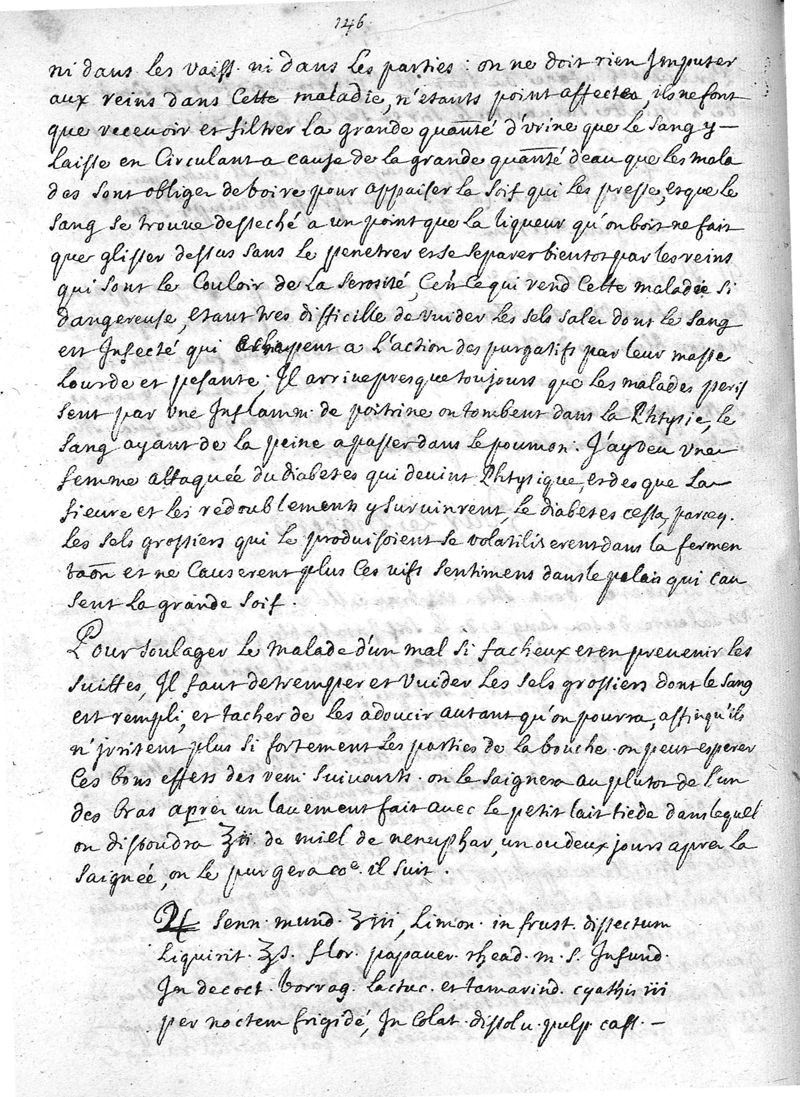 146
ni dans les vaiss. ni dans les parties : on ne doit rien Imputer
aux reins dans Cette maladie, n'étants point affectez, ils ne font
que recevoir et filtrer la grande quantité d'vrine que le sang y —
laisse en Circulant a cause de la grande quantité d'eau que les mala
des sont obligez de boire pour appaiser la soif qui les presse, et que le
sang se trouve desseché a un point que la liqueur qu'on boit ne fait
que glisser dessus sans le penetrer et se separer bientot par les reins
qui sont le Couloir de la serosité, C'est ce qui rend Cette maladie si
dangereuse, etant tres difficille de vuider les sels salez dont le sang
est Infecté qui echapent a l'action des purgatifs par leur masse
lourde et pesante. Il arrive presque toujours que les malades peris
sent par une Inflamm. de poitrine ou tombent dans la Phtysie, le
sang ayant de la peine a passer dans le poumon. J'ay veu une
femme attaquée du diabetes qui devint Phtysique, et des que la
fievre et les redoublements y survinrent le diabetes cessa, parceq.
les sels grossiers qui le produisoient se volatiliserent dans la fermen
taôn et ne Causerent plus Ces vifs sentimens dans le palais qui cau
sent la grande soif.
Pour soulager le malade d'un mal si facheux et en prevenir les
suittes, Il faut detremper et vuider les sels grossiers dont le sang
est rempli, et tacher de les adoucir autant qu'on pourra, affin qu'ils
n'jrritent plus si fortement les parties de la bouche. on peut esperer
Ces bons effets des rem. suivants. on le saignera au plutot de l'un
des bras aprez un lavement fait avec le petit lait tiede dans lequel
on dissoudra ℥ii. de miel de nenuphar, un ou deux jours aprez la
saignée, on le purgera co.e il suit.
♃ senn. mund. ʒiii, Limon. in frust. dissectum
liquirit. ʒs. flor. papaver. rhead. m. s. Infund.
In decoct. borrag. lactuc. et tamarind. cyathis iii
per noctem frigidé, In Colat. dissolu. pulp. cass. —